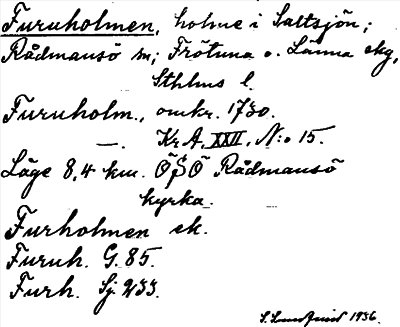 Furuholmen, holme i Saltsjön;
Rådmansö sn; Frötuna o. Länna skg,
Sthlms l.
Furuholm., omkr. 1730.
—. KrA, XXII, N:o 15.
Läge 8,4 km. ÖSÖ Rådmansö
kyrka.
Furholmen ek.
Furuh. G. 85.
Furh. Sj. 233.
1936.